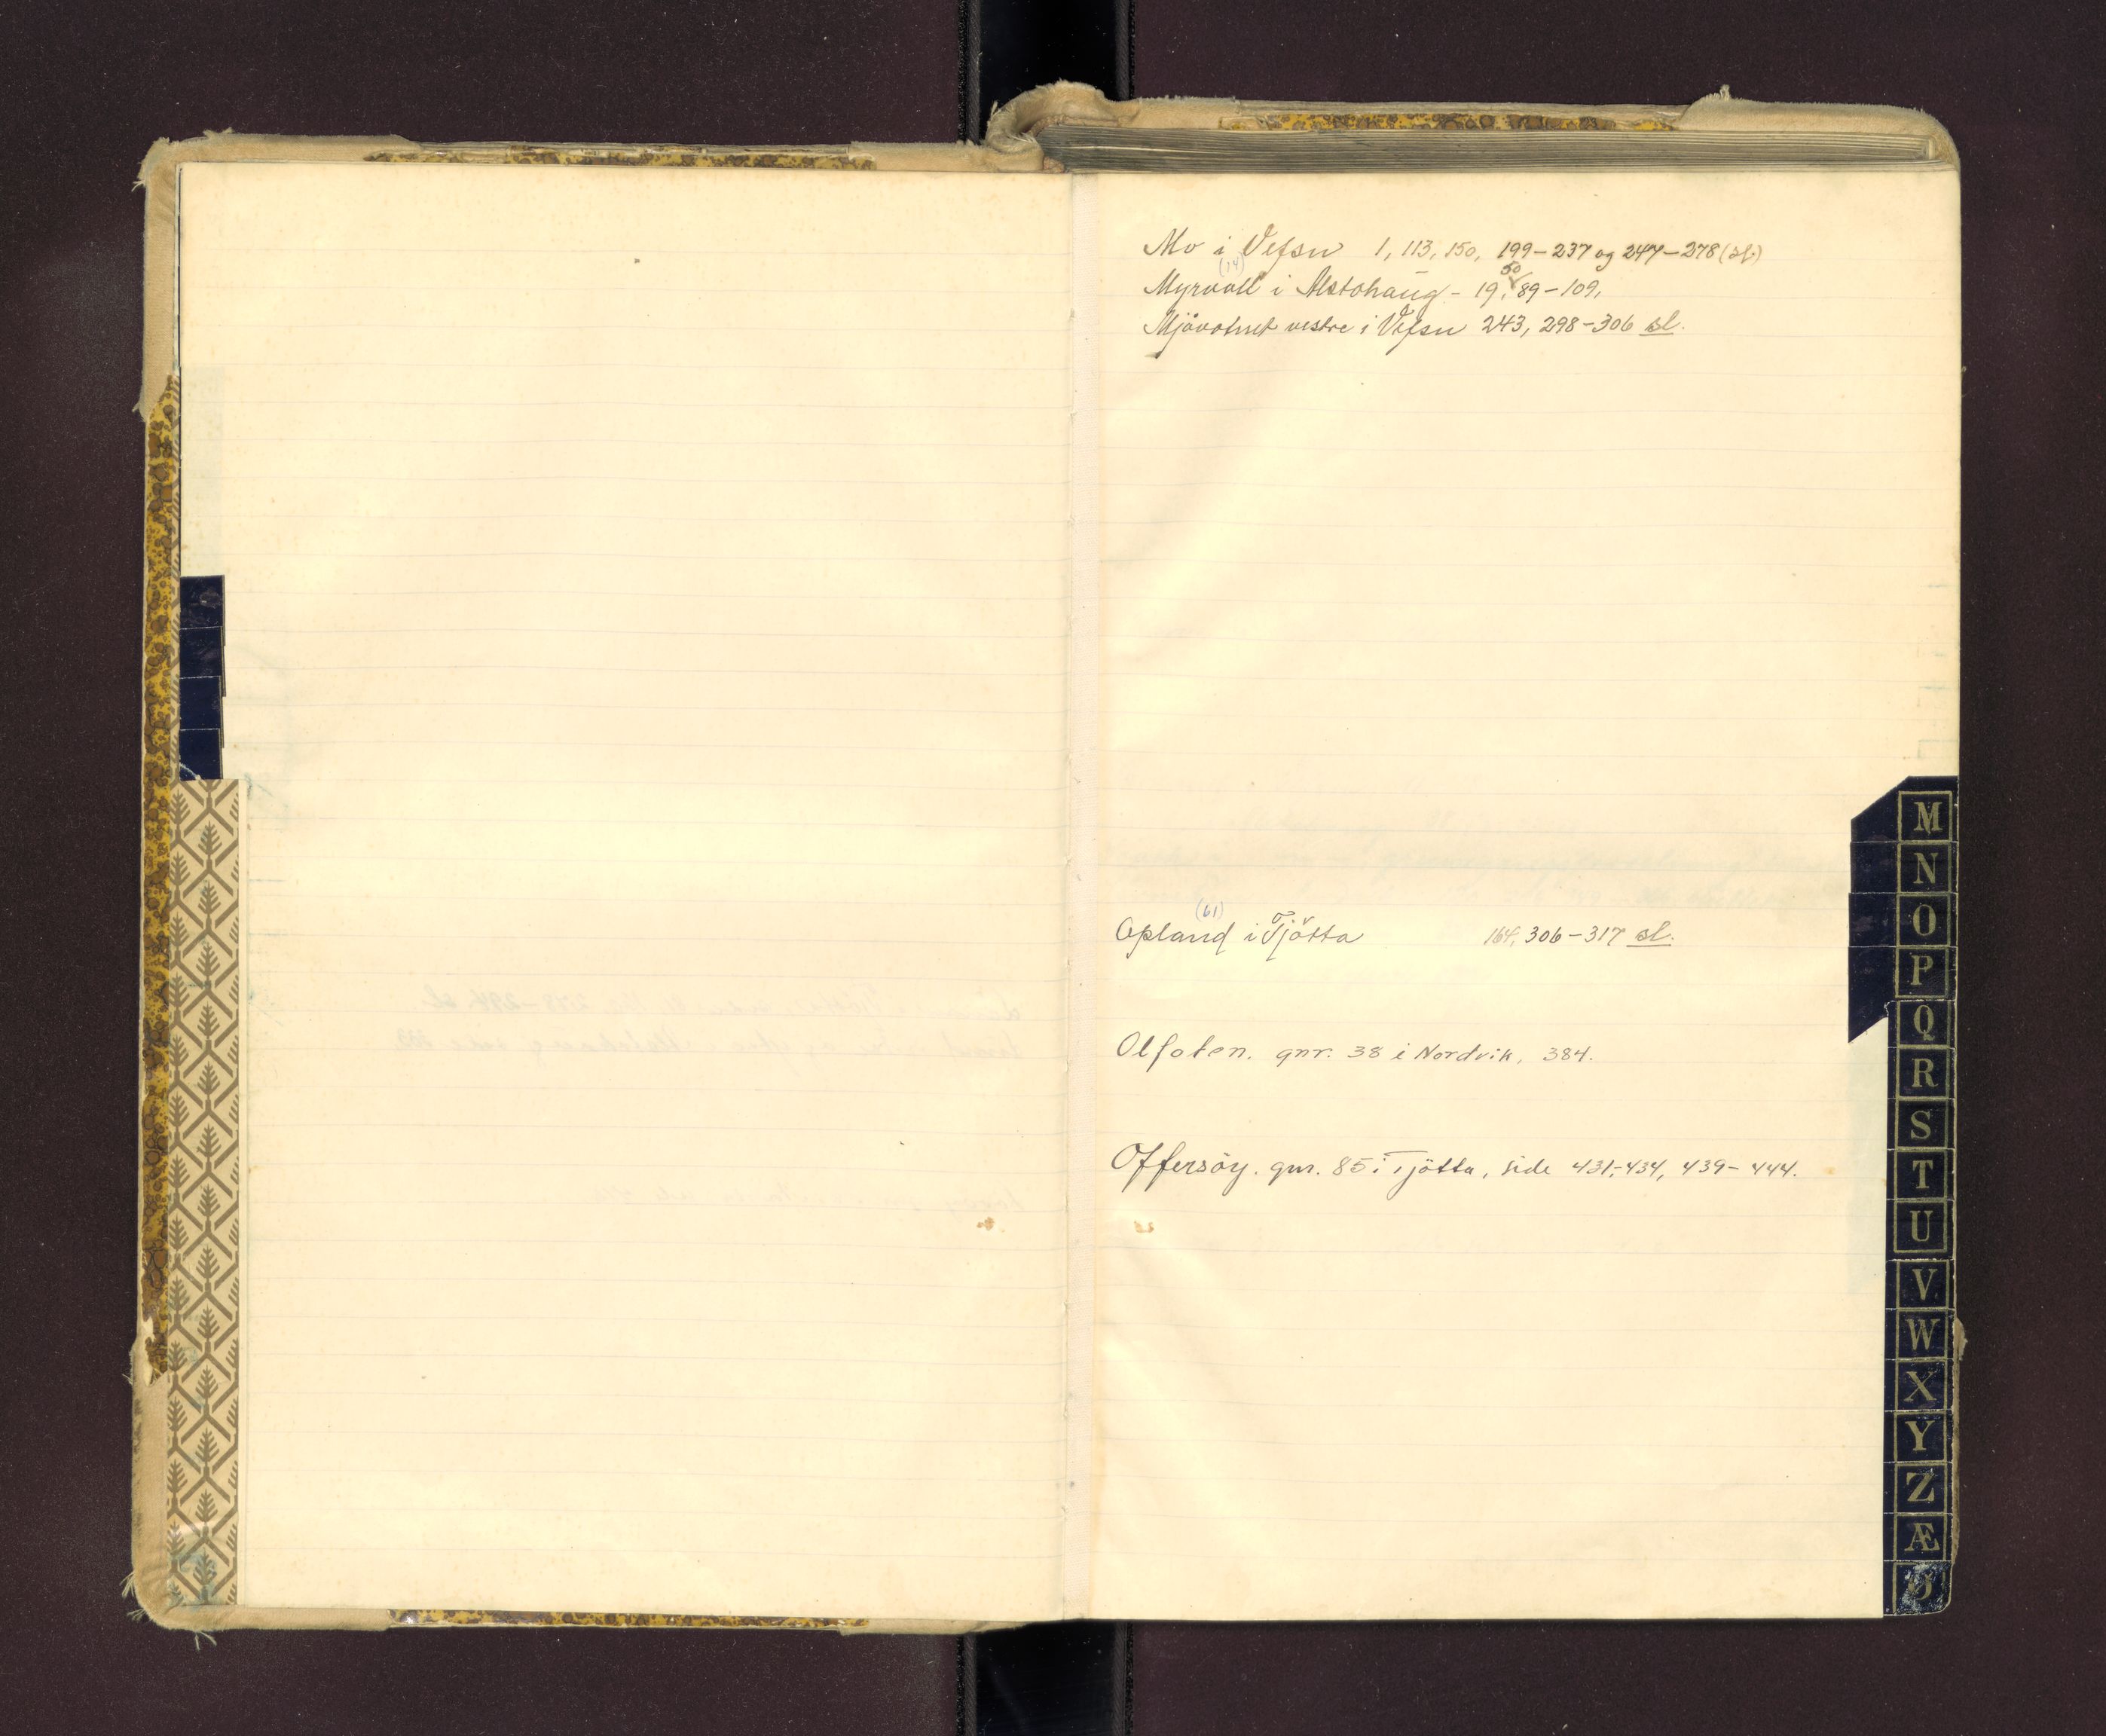 Mo i Vefsn 1, 113, 150, 199-237 og 247-278 (sl.)
(14)
50
Myrvoll i Alstahaug - 19, 89-109,
Mjåvatnet vestre i Vefsn 243, 298-306 sl.
(61)
Opland i Tjøtta 164, 306-317 sl.
Olfoten. gnr. 38 i Nordvik, 384.
Offersöy. gnr. 85 i Tjötta, side 431-434, 439-444.
M
N
O
P
Q
R
S
T
U
V
W
X
Y
Z
Æ
Ø